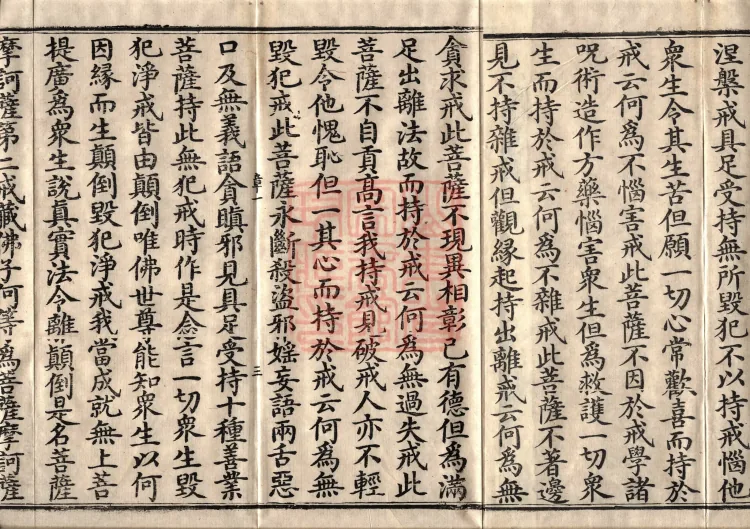 涅槃戒具足受持無所毀犯不以持戒惱他
衆生令其生苦但願一切心常歡喜而持於
戒云何為不惱害戒此菩薩不因於戒學諸
呪術造作方藥惱害衆生但為救護一切衆
生而持於戒云何為不雜戒此菩薩不著邊
見不持雜戒但觀緣起持出離戒云何為無
貪求戒此菩薩不現異相彰己有德但為滿
足出離法故而持於戒云何為無過失戒此
菩薩不自貢高言我持戒見破戒人亦不輕
毀令他愧恥但一其心而持於戒云何為無
毀犯戒此菩薩永斷殺盜邪婬妄語兩舌惡
三
口及無義語貪瞋邪見具足受持十種善業
菩薩持此無犯戒時作是念言一切衆生毀
犯淨戒皆由顛倒唯佛世尊能知衆生以何
因緣而生顛倒毀犯淨戒我當成就無上菩
提廣為衆生說真實法令離顛倒是名菩薩
摩訶薩第二戒藏佛子何等為菩薩摩訶薩